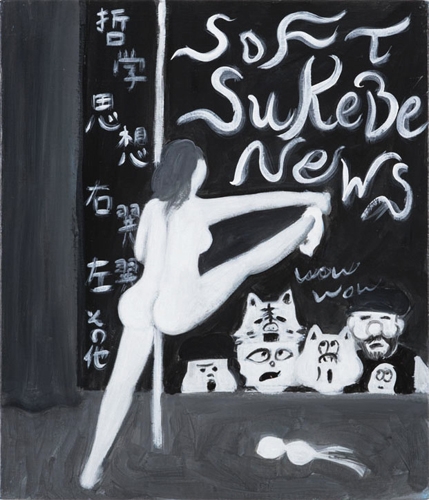 哲学
思想
右翼
左翼
その他
SOFT
SUKEBE
NEWS
wow
wow